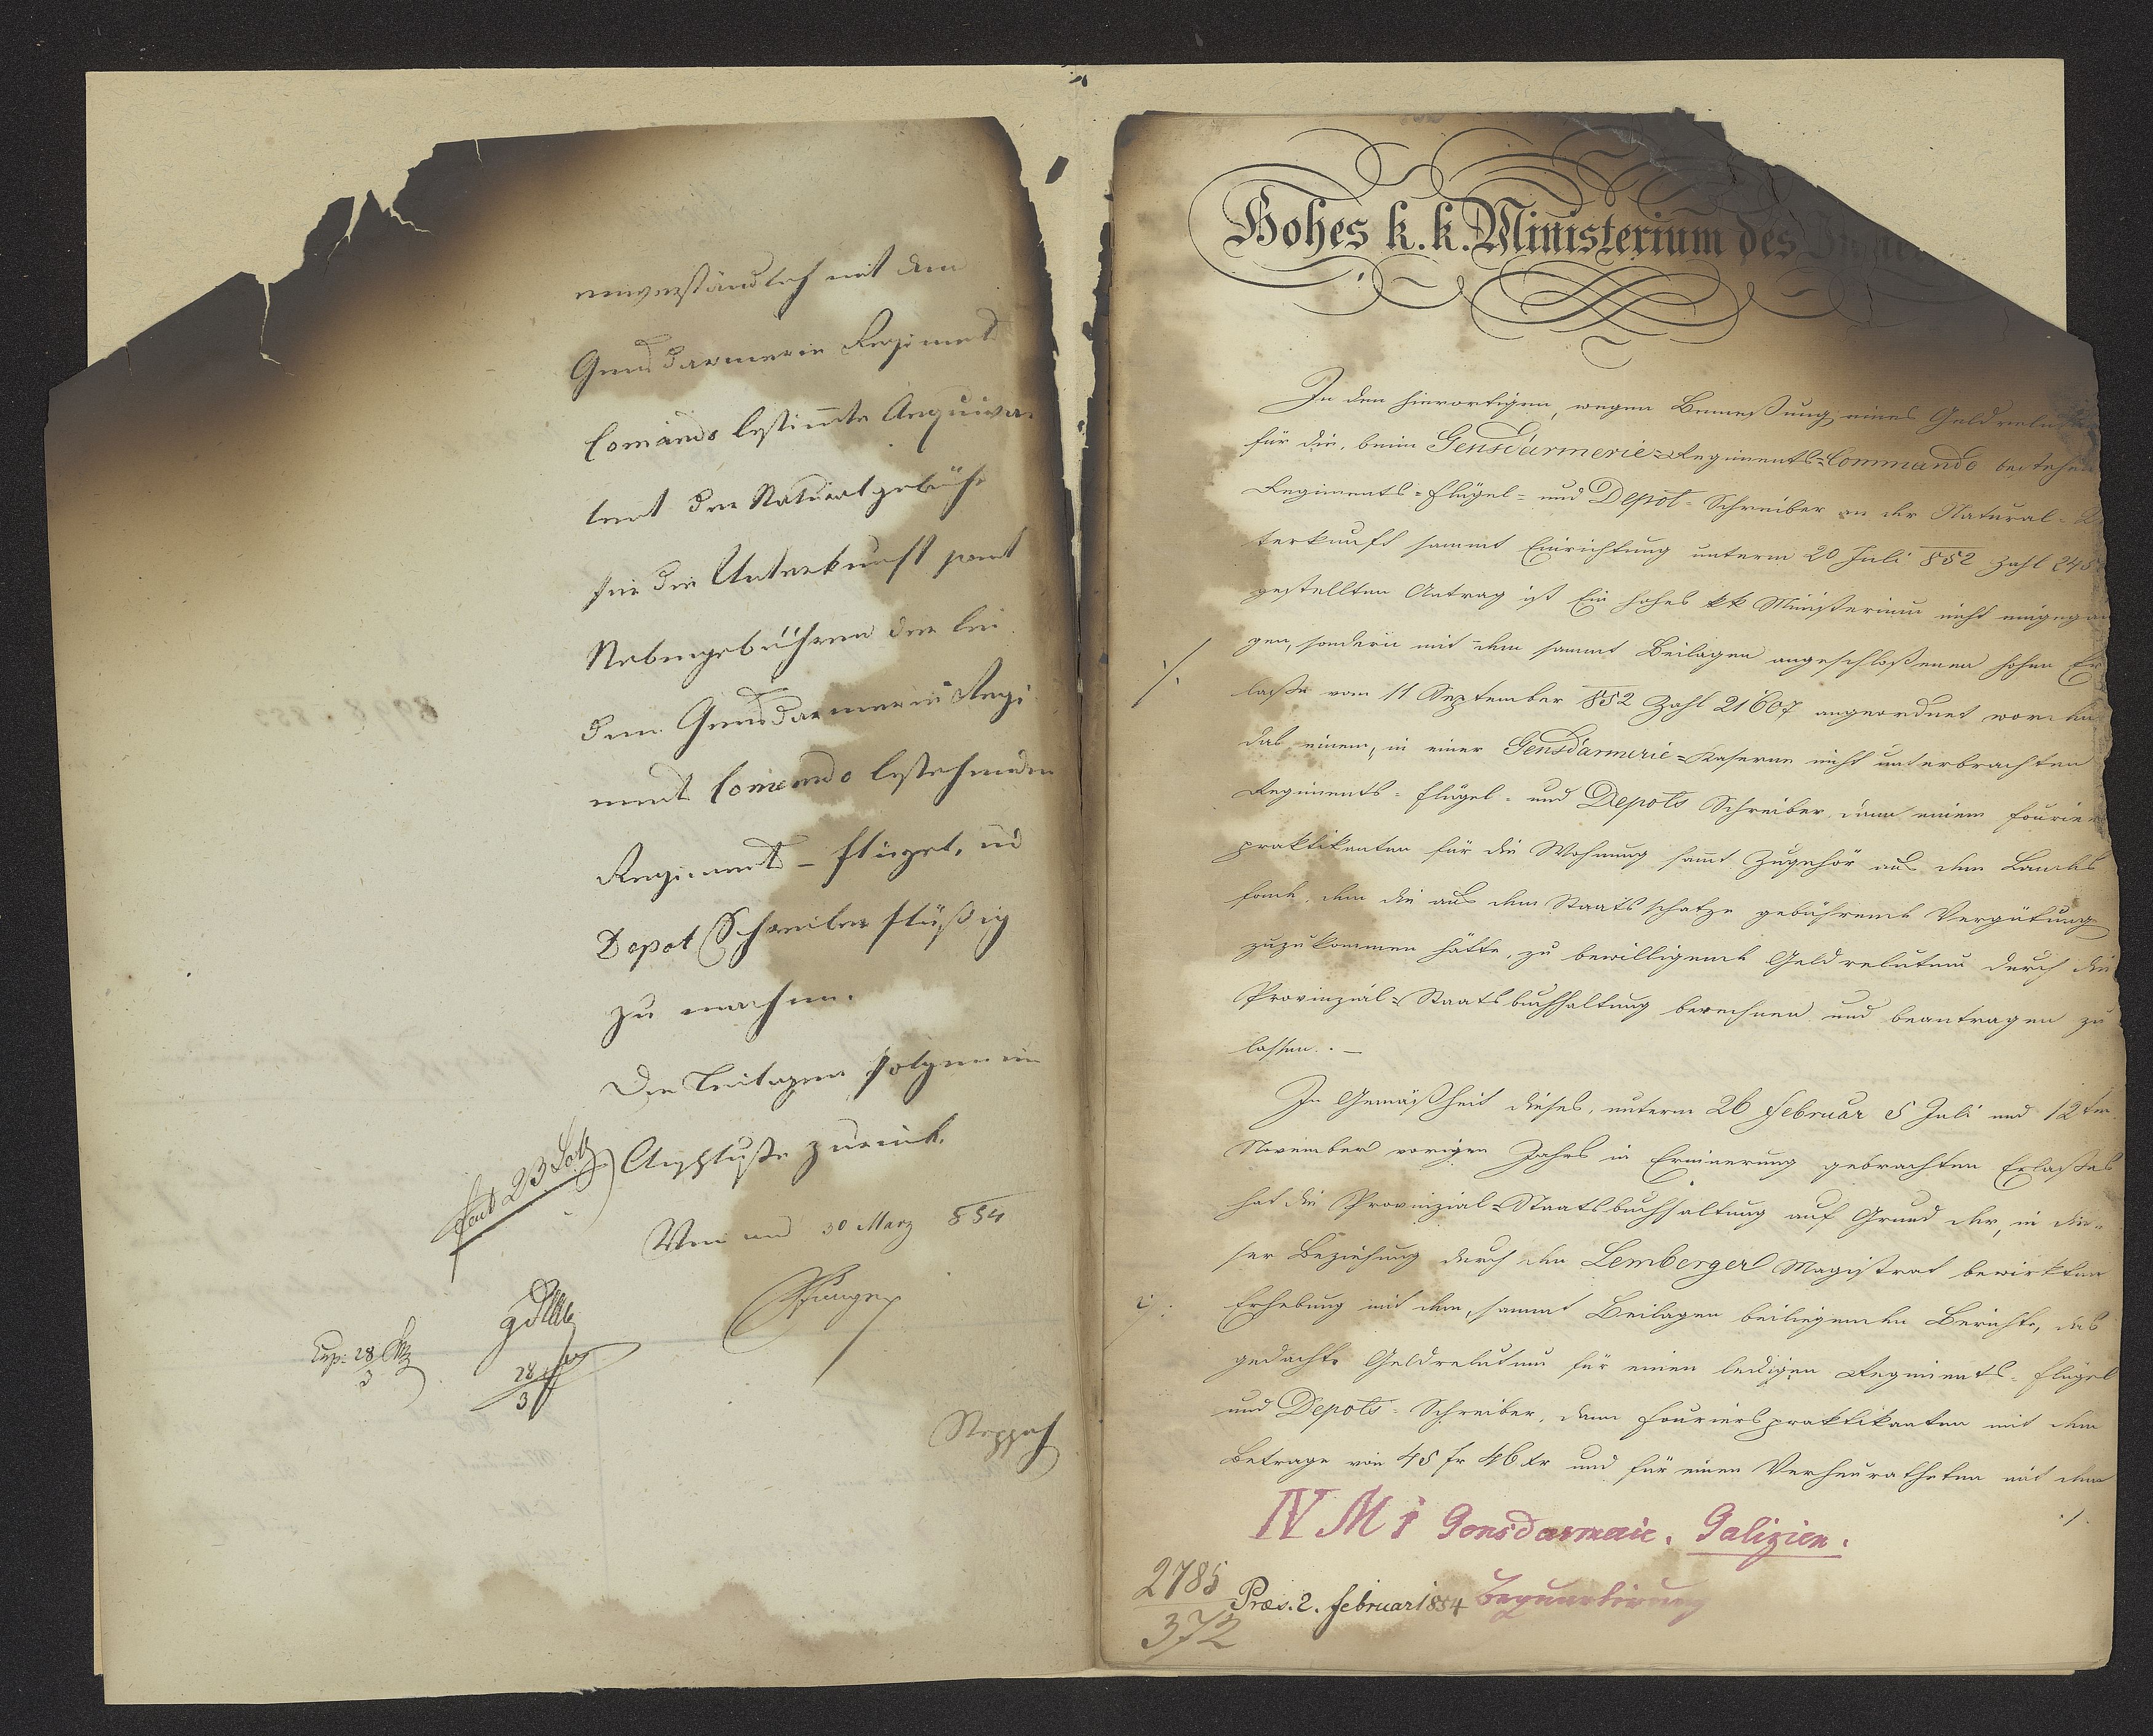 einverständlich mit dem
Gensdarmerie Regiments
Comando bestimte Aequiva-
lent der Naturalgebühr
für die Unterkunft samt
Nebengebühren der bei
dem Gensdarmerie Regi
ments Comando bestehenden
Regiments - Flügel, und
Depot Schreiber flüßig
zu machen.
Die Beilagen folgen im
Anschluße zurück.
Wien am 30 März 854
Exp: 28
3
28
3
Hohes k. k. Ministerium des Inner
In den hierortigen, wegen Bemeßung eines Geldrelut
für die, beim Gensdarmerie-Regiments-Commando bestehen
Regiments-Flügel- und Depôt-Schreiber an der Natural-
terkunft sammt Einrichtung unterm 20 Juli 852 Zahl 245
gestellten Antrag ist Ein hohes kk Ministerium nicht eingegan
gen, sondern mit dem sammt Beilagen angeschloßenen hohen Er
laße vom 11 September 852 Zahl 21607 angeordnet worden
daß einem, in einer Gensdarmerie-Kaserne nicht unterbrachten
Regiments-Flügel- und Depots Schreiber, dann einem Fourier
praktikanten für die Wohnung samt Zugehör aus dem Landes
fonde, dem die aus dem Staatsschatze gebührende Vergütung
zuzukommen hätte, zu bewilligende Geldrelutum durch die
Provinzial-Staatsbuchhaltung berechnen und beantragen zu
lassen. -
In Gemäßheit dieses, unterm 26 Februar 5 Juli und 12ten
November vorigen Jahrs in Erinnerung gebrachten Erlaßes
hat die Provinzial-Staatsbuchhaltung auf Grund der, in die-
ser Beziehung durch den Lemberger Magistrat bewirkten
Erhebung mit dem, sammt Beilagen beiliegenden Berichte, das
gedachte Geldrelutum für einen ledigen Regiments-Flügel
und Depots-Schreiber, dann Fourierspraktikanten mit dem
Betrage von 45 fr 46 xr und für einen Verheuratheten mit dem
./.
IV M 1 Gensdarmerie. Galizien.
2785
372
Præs. 2. Februar 1854 Bequartirung